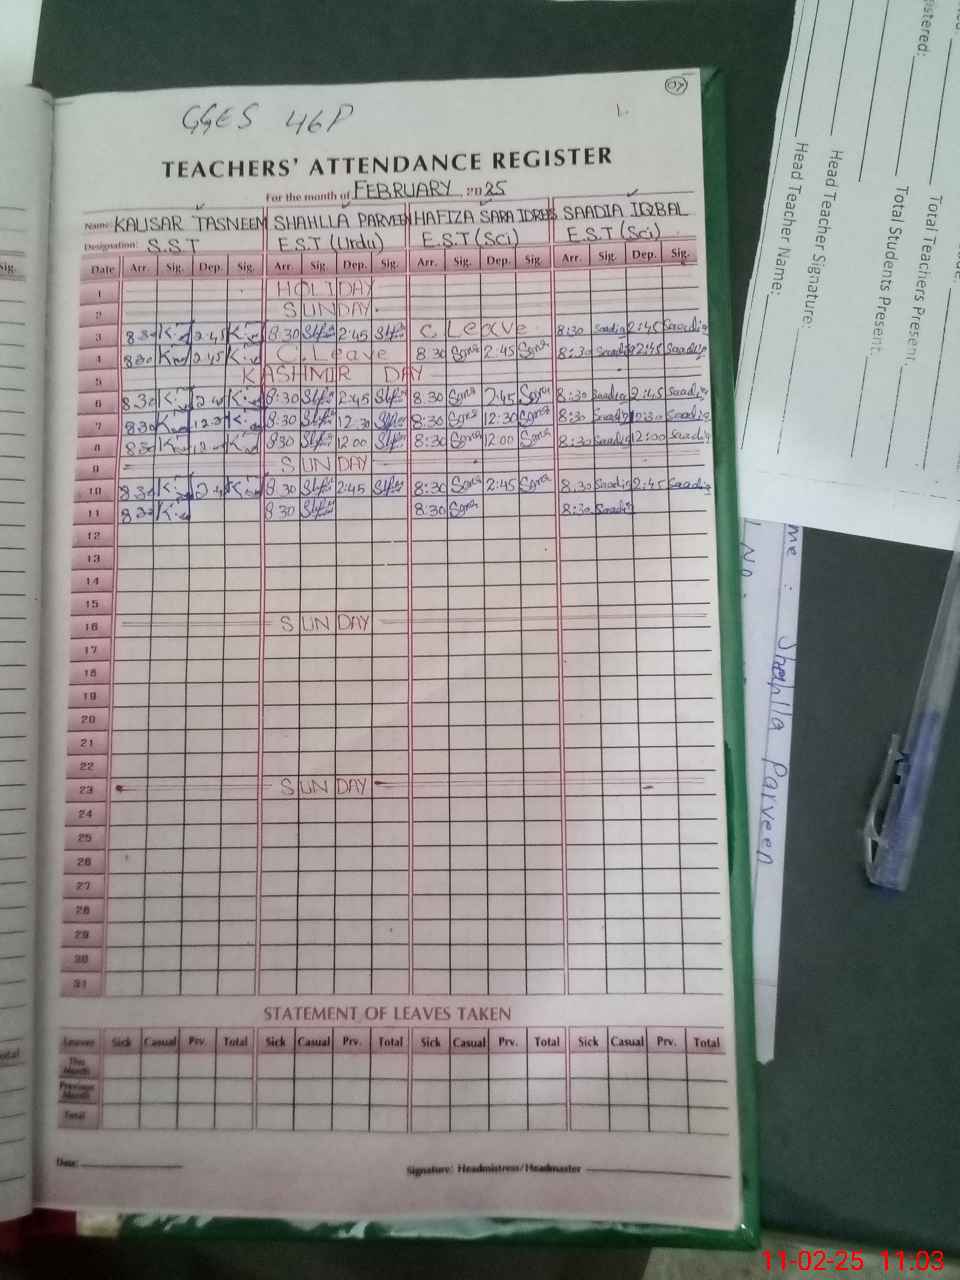 07
GGES 46P
TEACHERS' ATTENDANCE REGISTER
For the month of FEBRUARY 2025
Name: KAUSAR TASNEEM SHAHLLA PARVEEN HAFIZA SARA IDREES SAADIA IQBAL
Designation: S.S.T E.S.T (Urdu) E.S.T (Sci) E.S.T (Sci)
Date Arr. Sig. Dep. Sig. Arr. Sig. Dep. Sig. Arr. Sig. Dep. Sig. Arr. Sig. Dep. Sig.
1 HOLIDAY
2 SUNDAY
3 8:30 2:45 8:30 2:45 C. Leave 8:30 Saadia 2:45 Saadia
4 8:30 2:45 C. Leave 8:30 Sara 2:45 Sara 8:30 Saadia 2:45 Saadia
5 KASHMIR DAY
6 8:30 2:45 8:30 2:45 8:30 Sara 2:45 Sara 8:30 Saadia 2:45 Saadia
7 8:30 12:30 8:30 12:30 8:30 Sara 12:30 Sara 8:30 Saadia 12:30 Saadia
8 8:30 8:30 12:00 8:30 Sara 12:00 Sara 8:30 Saadia 12:00 Saadia
9 SUNDAY
10 8:30 2:45 8:30 2:45 8:30 Sara 2:45 Sara 8:30 Saadia 2:45 Saadia
11 8:30 8:30 8:30 Sara 8:30 Saadia
12
13
14
15
16 SUNDAY
17
18
19
20
21
22
23 SUNDAY
24
25
26
27
28
29
30
31
STATEMENT OF LEAVES TAKEN
Leaves Sick Casual Prv. Total Sick Casual Prv. Total Sick Casual Prv. Total Sick Casual Prv. Total
This Month
Previous Month
Total
Date:
Signature: Headmistress/Headmaster
Total Teachers Present:
Total Students Present:
Head Teacher Signature:
Head Teacher Name:
me: Shahlla Parveen
11-02-25 11:03